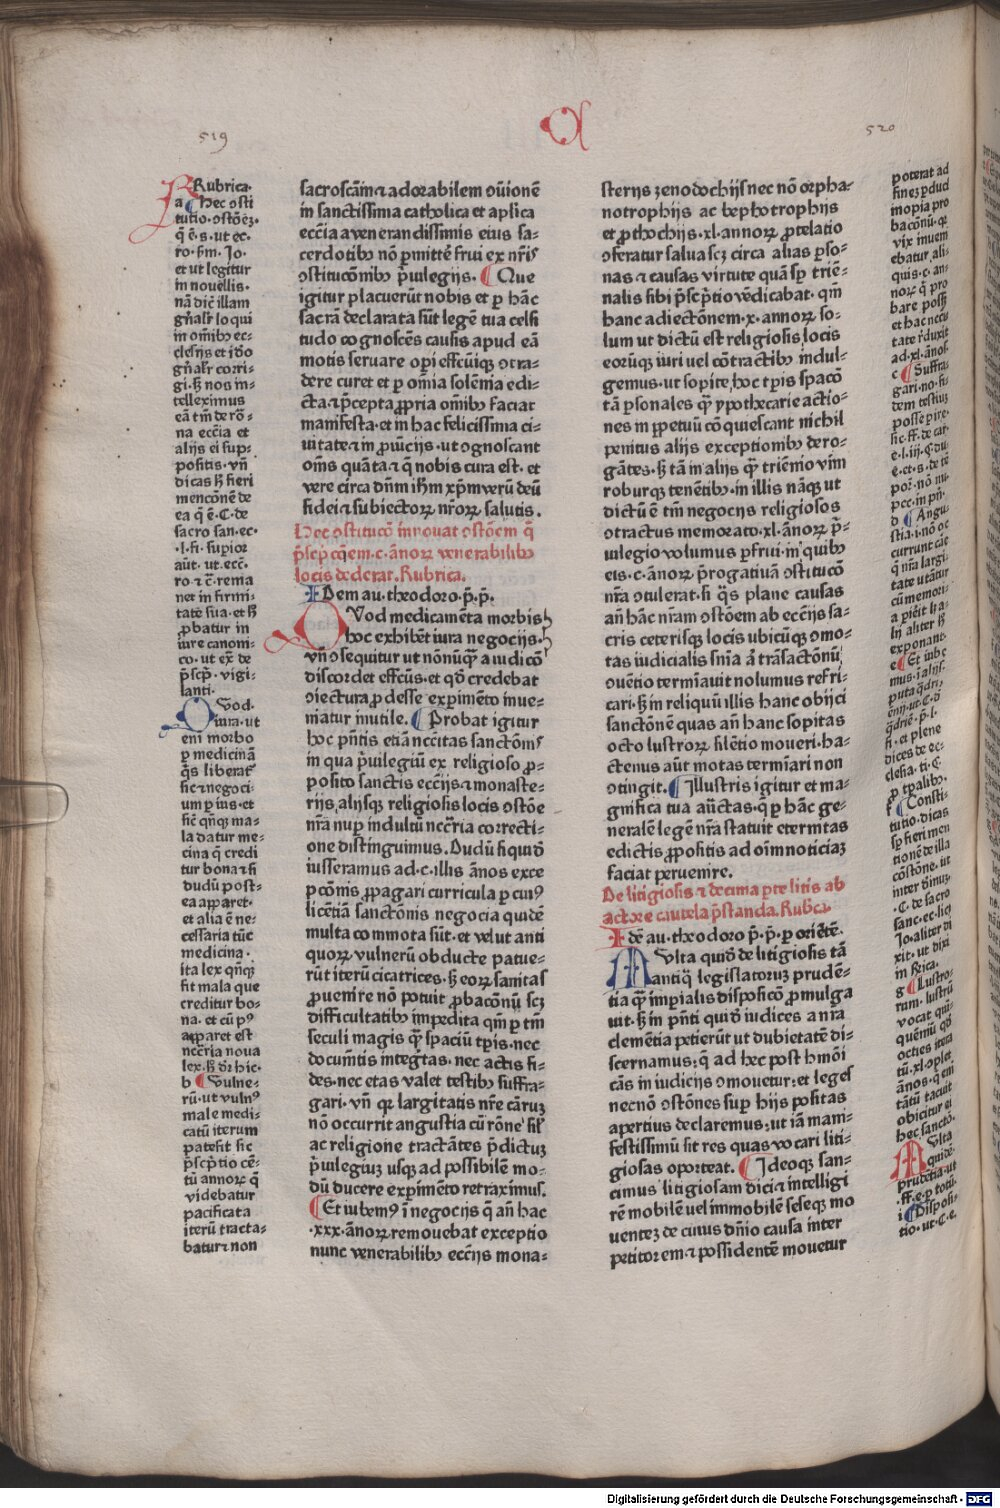 519
520
Rubrica.
a Hec osti
tutio ꝯstōeꝫ.
q̄ ē.s. ut ec.
ro. p̄m. Jo.
et ut legitur
in nouellis.
nā dic̄ illam
gn̄alr̄ loqui
in om̄ibꝰ ec-
clesijs et ideo
gn̄alr̄ corri-
gi. ſꝫ nos in-
telleximus
eā tm̄ de ro-
na ecc̄ia et
alijs ei sup-
positis. vn̄
dicas ſꝫ fieri
mencōnē de
ea q̄ ē. C. de
sacro san. ec.
.l. fi. supior
aūt. ut. ecc̄.
ro. ⁊ c̄. rema
net in firmi-
tate sua. et ſꝫ
ꝓbatur in
iure canoni-
co. ut ex̄ de
p̄scp̄. vigi-
lanti.
Qvod.
iura. ut
eni morbo
ꝑ medicinā
q̄s liberat᷑
sic ⁊ negoci-
um ꝑ ius. et
sic̄ qn̄qꝫ ma-
la datur me-
cina q̄ credi
tur bona ⁊ si
dudū post-
ea apparet.
et alia ē ne-
cessaria tūc
medicina.
ita lex qn̄qꝫ
fit mala que
creditur bo-
na. et cū pꝰ
apparet est
nccr̄ia noua
lex. ſꝫ dr̄ hic.
b Vulne-
rū. ut vulnꝰ
male medi-
catū iterum
patefit sic
p̄scp̄tio cē-
tū annoꝝ q̄
videbatur
pacificata
iterū tracta-
batur ⁊ non
sacroscām ⁊ adorabilem oūionē
in sanctissima catholica et apl̄ica
ecc̄ia a venerandissimis eius sa-
cerdotibꝰ nō ꝑmittē frui ex nr̄is
ꝯstitucōnibꝰ p̄uilegijs. Que
igitur placuerūt nobis et ꝑ hāc
sacrā declarata sūt legē tua celsi
tudo cognoscēs causis apud eā
motis seruare opi effcūiqꝫ ꝯtra-
dere curet et ꝑ om̄ia solēnia edi-
cta ⁊ p̄cepta ꝓpria om̄ibꝰ faciat
manifesta. et in hac felicissima ci-
uitate ⁊ in ꝓuīcijs. ut ꝯgnoscant
om̄s quāta ⁊ q̄ nobis cura est. et
vere circa dn̄m ihm̄ xp̄m verū deū
fidei ⁊ subiectoꝝ nr̄oꝝ salutis.
Hec ꝯstitucō innouat ꝯstōem q̄
p̄scp̄cōem .c. ānoꝝ venerabilibꝰ
locis dederat. Rubrica.
IDem au. theodoro. p̄. p̄.
QVod medicamēta morbis
hoc exhibēt iura negocijs.
vn̄ ꝯsequitur ut nōnūq̄ a iudicō
discordet effcūs. et qd̄ credebat
ꝯiectura ꝓdesse experimēto inue-
niatur inutile. Probat igitur
hoc pn̄tis etiā nccītas sanctōnis
in qua p̄uilegiū ex religioso ꝓ-
posito sanctis ecc̄ijs ⁊ monaste-
rijs alijsqꝫ religiosis locis ꝯstōe
nr̄a nup̄ indultū nccr̄ia correcti-
one distinguimus. Dudū siquid̄
iusseramus ad .c. illis ānos exce
pcōnis ꝓpagari curricula ꝑ cuiꝰ
licētiā sanctōnis negocia quidē
multa commota sūt. et velut anti
quoꝝ vulnerū obducte patue-
rūt iterū cicatrices. ſꝫ eoꝝ sanitas
ꝓuenire nō potuit ꝓbacōnū scꝫ
difficultatibꝰ impedita qm̄ ꝑ tm̄
seculi magis q̄ spaciū tp̄is. nec
documētis inteḡtas. nec actis fi-
des. nec etas valet testibꝰ suffra-
gari. vn̄ qr̄ largitatis nr̄e cāruꝫ
nō occurrit angustia cū rōne sil̄
ac religione tractātes p̄dictuꝫ
p̄uilegiuꝫ usqꝫ ad possibilē mo-
dū ducere experimēto retraximus.
Et iubemꝰ ī negocijs q̄ an̄ hac
.xxx. ānoꝝ remouebat exceptio
nunc venerabilibꝰ ecc̄ijs mona-
sterijs ꝫenodochijs nec nō orpha-
notrophijs ac brephotrophijs
et ptochijs .xl. annoꝝ ꝓtelatio
ꝯferatur salua scꝫ circa alias ꝑso-
nas ⁊ causas virtute quā sp̄ triē-
nalis sibi p̄scp̄tio vēdicabat. qm̄
hanc adiectōnem .x. annoꝝ so-
lum ut dictū est religiosis locis
eorūqꝫ iuri vel cōtractibꝰ indul-
gemus. ut sopite hoc tp̄is spacō
tā ꝑsonales q̄ ypothecarie actio-
nes in ꝑpetuū cōquiescant nichil
penitus alijs exceptionibꝰ dero-
gātes. ſꝫ tā in alijs q̄ triēnio vim
roburqꝫ tenētibꝰ. in illis nāqꝫ ut
dictū ē tm̄ negocijs religiosos
ꝯtractus memorato .xl. ānoꝝ p̄-
uilegio volumus ꝑfrui. in quibꝰ
eis .c. ānoꝝ p̄rogatiuā ꝯstitucō
nr̄a ꝯtulerat. si q̄s plane causas
an̄ hāc nr̄am ꝯstōem ab ecc̄ijs sa-
cris ceterisqꝫ locis ubicūqꝫ ꝯmo-
tas iudicialis sn̄ia aut trāsactōnū
ꝯuētio termīauit nolumus refri-
cari. ſꝫ in reliquū illis hanc obijci
sanctōnē quas an̄ hanc sopitas
octo lustroꝝ silētio moueri. ha-
ctenus aūt motas termīari non
ꝯtingit. Illustris igitur et ma-
gnifica tua auc̄tas. q̄ ꝑ hāc ge-
neralē legē nr̄a statuit eternitas
edictis ꝓpositis ad oīm noticiaꝫ
faciat peruenire.
De litigiosis ⁊ decima ꝑte litis ab
actore cautela p̄standa. Rub̄ca.
Idē au. theodoro. p̄. p̄. ꝑ oriētē.
MVlta quid̄ de litigiosis tā
antiq̄ legislatoruꝫ prudē-
tia q̄ imp̄ialis disposicō ꝓmulga
uit. ſꝫ in pn̄ti quid̄ iudices a nr̄a
clemētia petierūt ut dubietatē di-
scernamus. q̄ ad hec post hmōi
cās in iudicijs ꝯmouetur. et leges
necnō ꝯstōnes sup̄ hijs positas
apertius declaremus. ut iā mani-
festissimū sit res quas vocari liti-
giosas oporteat. Ideoqꝫ san-
cimus litigiosam dici ⁊ intelligi
rē mobilē uel immobilē seseqꝫ mo
uenteꝫ de cuius dn̄io causa inter
petitorem ⁊ possidentē mouetur
poterat ad
fineꝫ ꝑduci
inopia pro
bacōnū. q̄
vix inueni
ebatur ali-
quis .c. an-
noꝝ q̄ pro
bare possꝫ
et hac neccī
tate r̄duxit
ad .xl. ānos.
c Suffra-
gari. no. fi-
dem testiuꝫ
posse ꝑire.
d Angu-
stia. i. nō oc
currunt cāe
q̄ nr̄a largi-
tate utātur
e Et inbe
mus. i alijs.
f Consti-
tutio. dicas
sp̄ fieri men
tionē de illa
cōstōne. ut
inter diuīꝫ.
.C. de sacro
sanc. ec. licꝫ
Jo. aliter di
xit. ut dixi
in r̄ica.
g Lustro-
rum. lustrū
vocat quī-
quēniū qd̄
octies itera
tū .xl. ꝯplet
ānos. q̄ eni
tātū tacuit
obicitur ei
hec sanctō.
MVlta
quidē.
prudētia. ut
.ff. e. ꝑ totū.
i Disposi-
tio. ut. C. e.
Digitalisierung gefördert durch die Deutsche Forschungsgemeinschaft - DFG